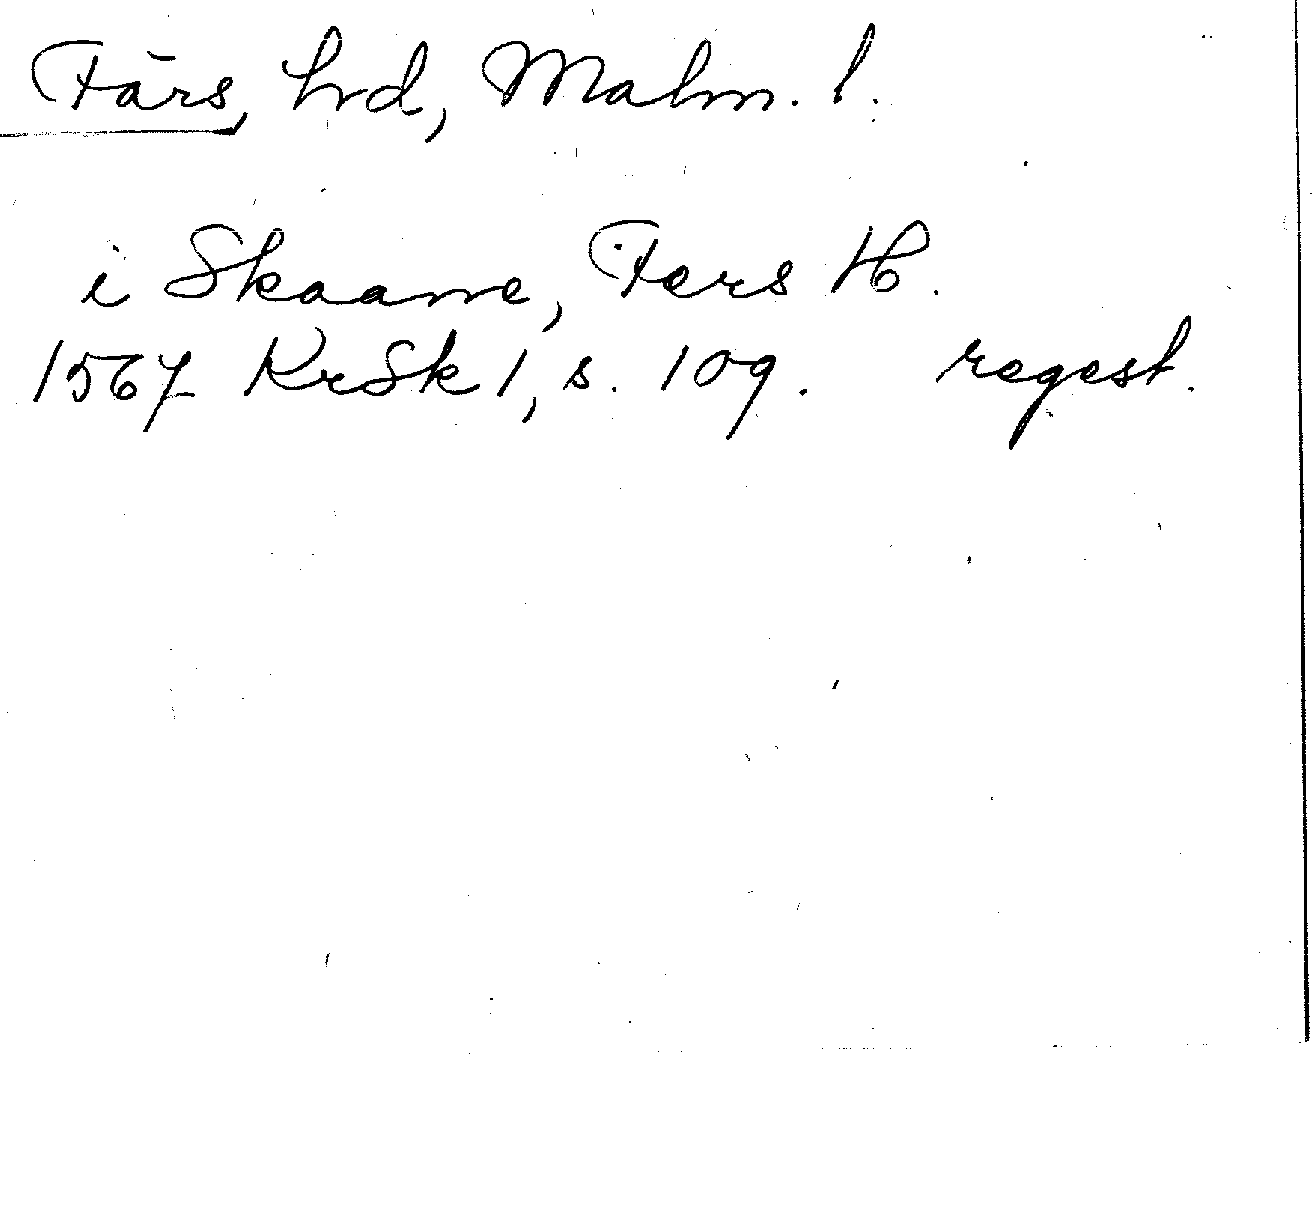 Färs, hrd, Malm. l.
i Skaane, Fers H.
1567 KrSk 1, s. 109. regest.